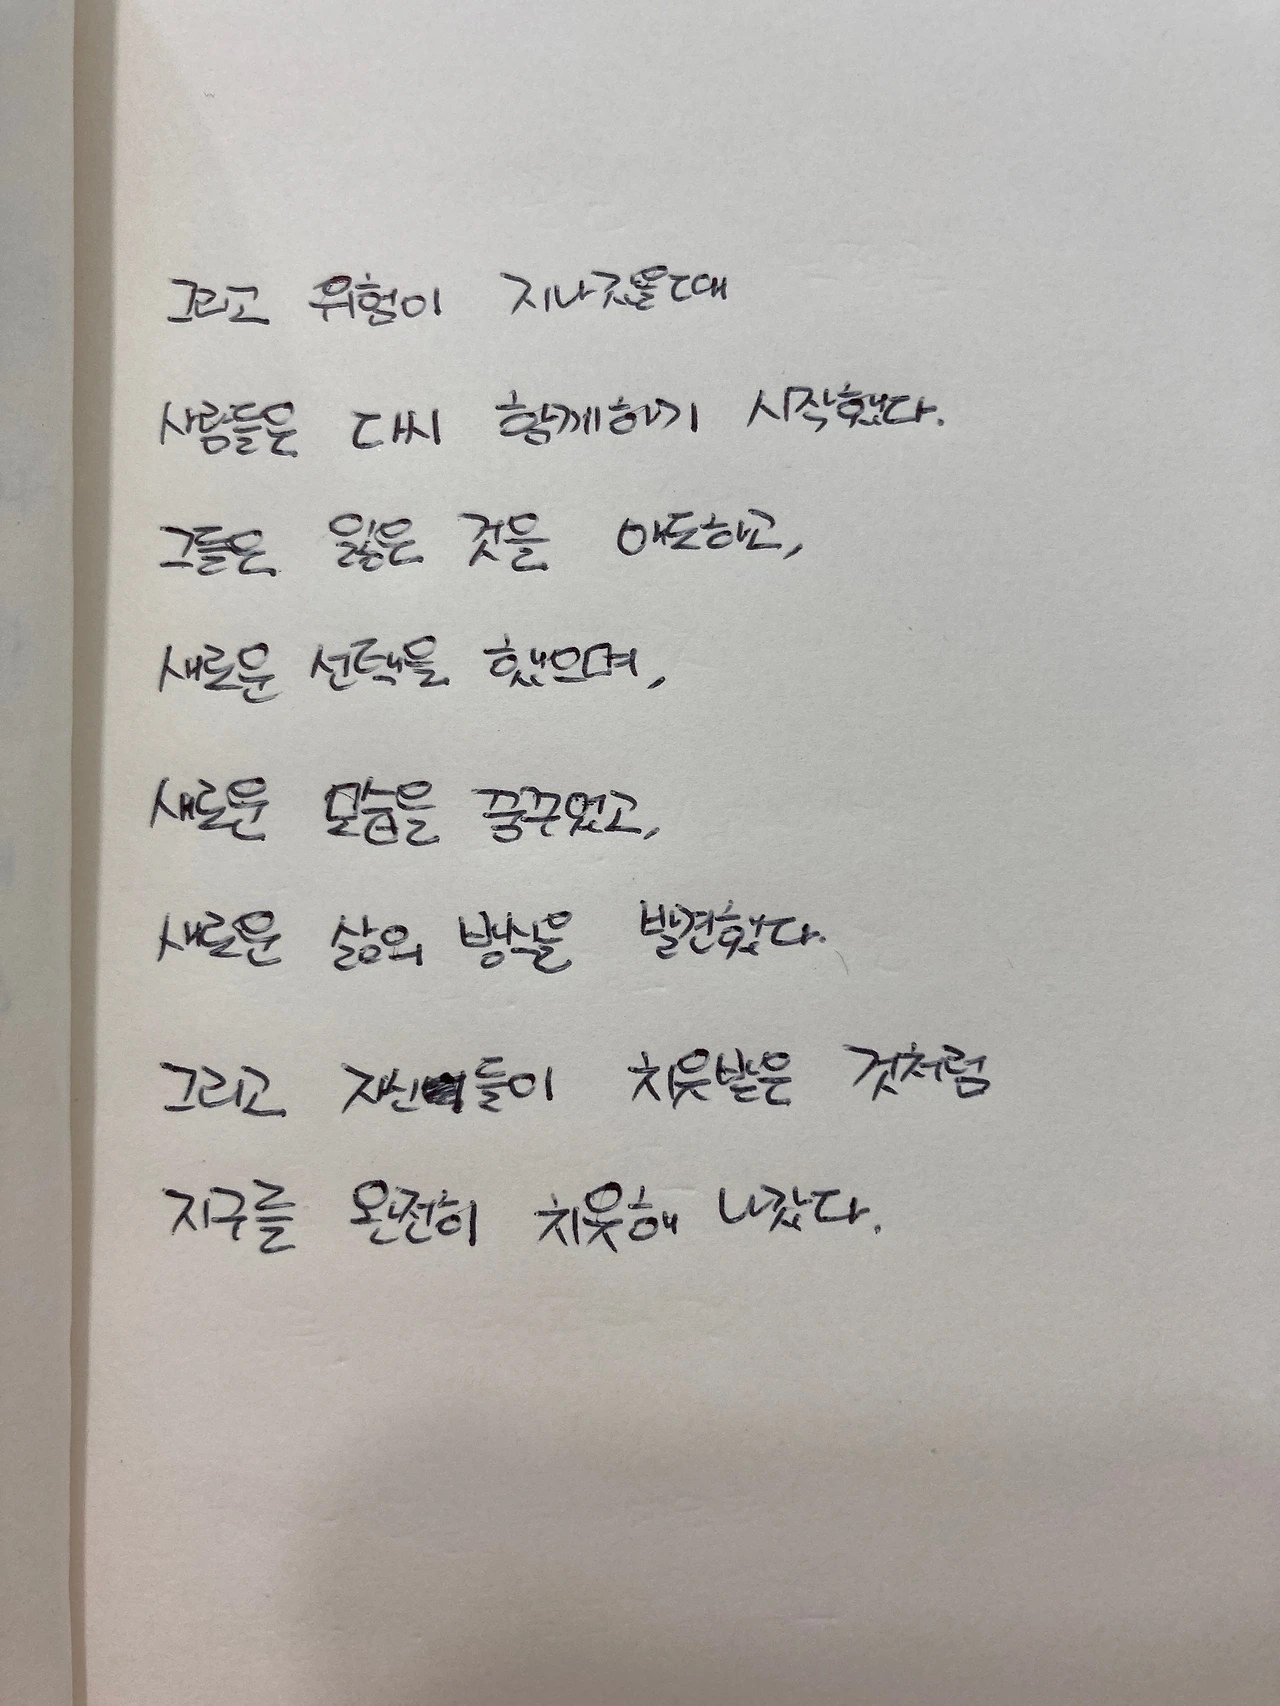 그리고 위험이 지나갔을때
사람들은 다시 함께하기 시작했다.
그들은 잃은 것을 애도하고,
새로운 선택을 했으며,
새로운 모습을 꿈꾸었고,
새로운 삶의 방식을 발견했다.
그리고 자신들이 치윳받은 것처럼
지구를 완전히 치윳해 나갔다.